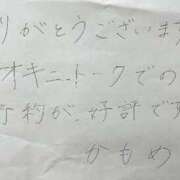 りがとうございます
オキニートークでの
予約が、好評です
かもめ